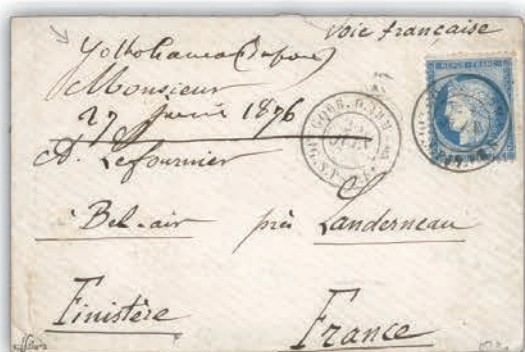 voie française
Yokohama (Japon)
Monsieur
27 1876
A. Lefournier
Bel-air près Landerneau
Finistère France
CORR. D. ARM.
REPUB. FRANC.